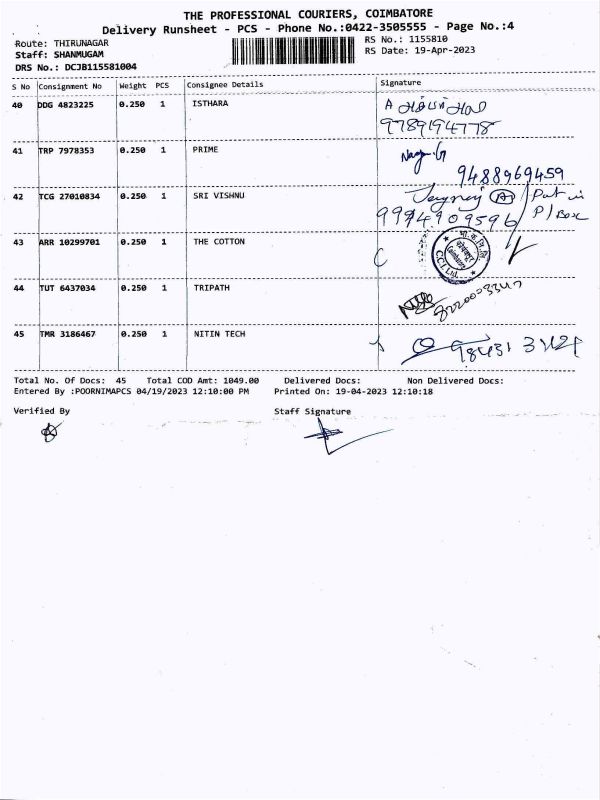 THE PROFESSIONAL COURIERS, COIMBATORE
Delivery Runsheet - PCS - Phone No.:0422-3505555 - Page No.:4
Route: THIRUNAGAR RS No.: 1155810
Staff: SHANMUGAM RS Date: 19-Apr-2023
DRS No.: DCJB115581004
S No Consignment No Weight PCS Consignee Details Signature
40 DDG 4823225 0.250 1 ISTHARA A
9789194778
41 TRP 7978353 0.250 1 PRIME
9488969459
42 TCG 27010834 0.250 1 SRI VISHNU Put in
9994909596 P/Box
43 ARR 10299701 0.250 1 THE COTTON
C.C.I. Ltd.
44 TUT 6437034 0.250 1 TRIPATH
45 TMR 3186467 0.250 1 NITIN TECH
Total No. Of Docs: 45 Total COD Amt: 1049.00 Delivered Docs: Non Delivered Docs:
Entered By :POORNIMAPCS 04/19/2023 12:10:00 PM Printed On: 19-04-2023 12:10:18
Verified By Staff Signature